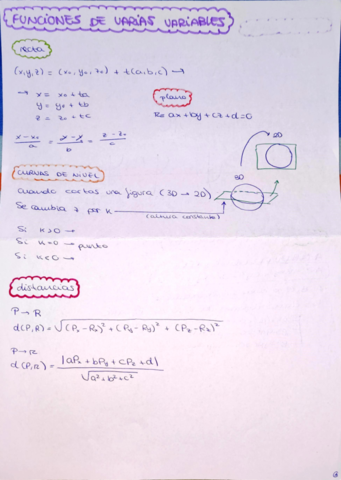 FUNCIONES DE VARIAS VARIABLES
recta
(x,y,z) = (x₀, y₀, z₀) + t(a,b,c) →
→ x = x₀ + ta
y = y₀ + tb
z = z₀ + tc
plano
ax+by+cz+d=0
x-x₀/a = y-y₀/b = z-z₀/c
2D
CURVAS DE NIVEL
3D
Cuando cortas una figura (3D → 2D)
Se cambia z por k
(altura constante)
Si k>0 →
Si k=0 → punto
Si k<0 →
distancias
P → R
d(P,R) = √(Pₓ-Rₓ)² + (Pᵧ-Rᵧ)² + (P_z-R_z)²
P → π
d(P,π) = |aPₓ + bPᵧ + cP_z + d| / √a²+b²+c²